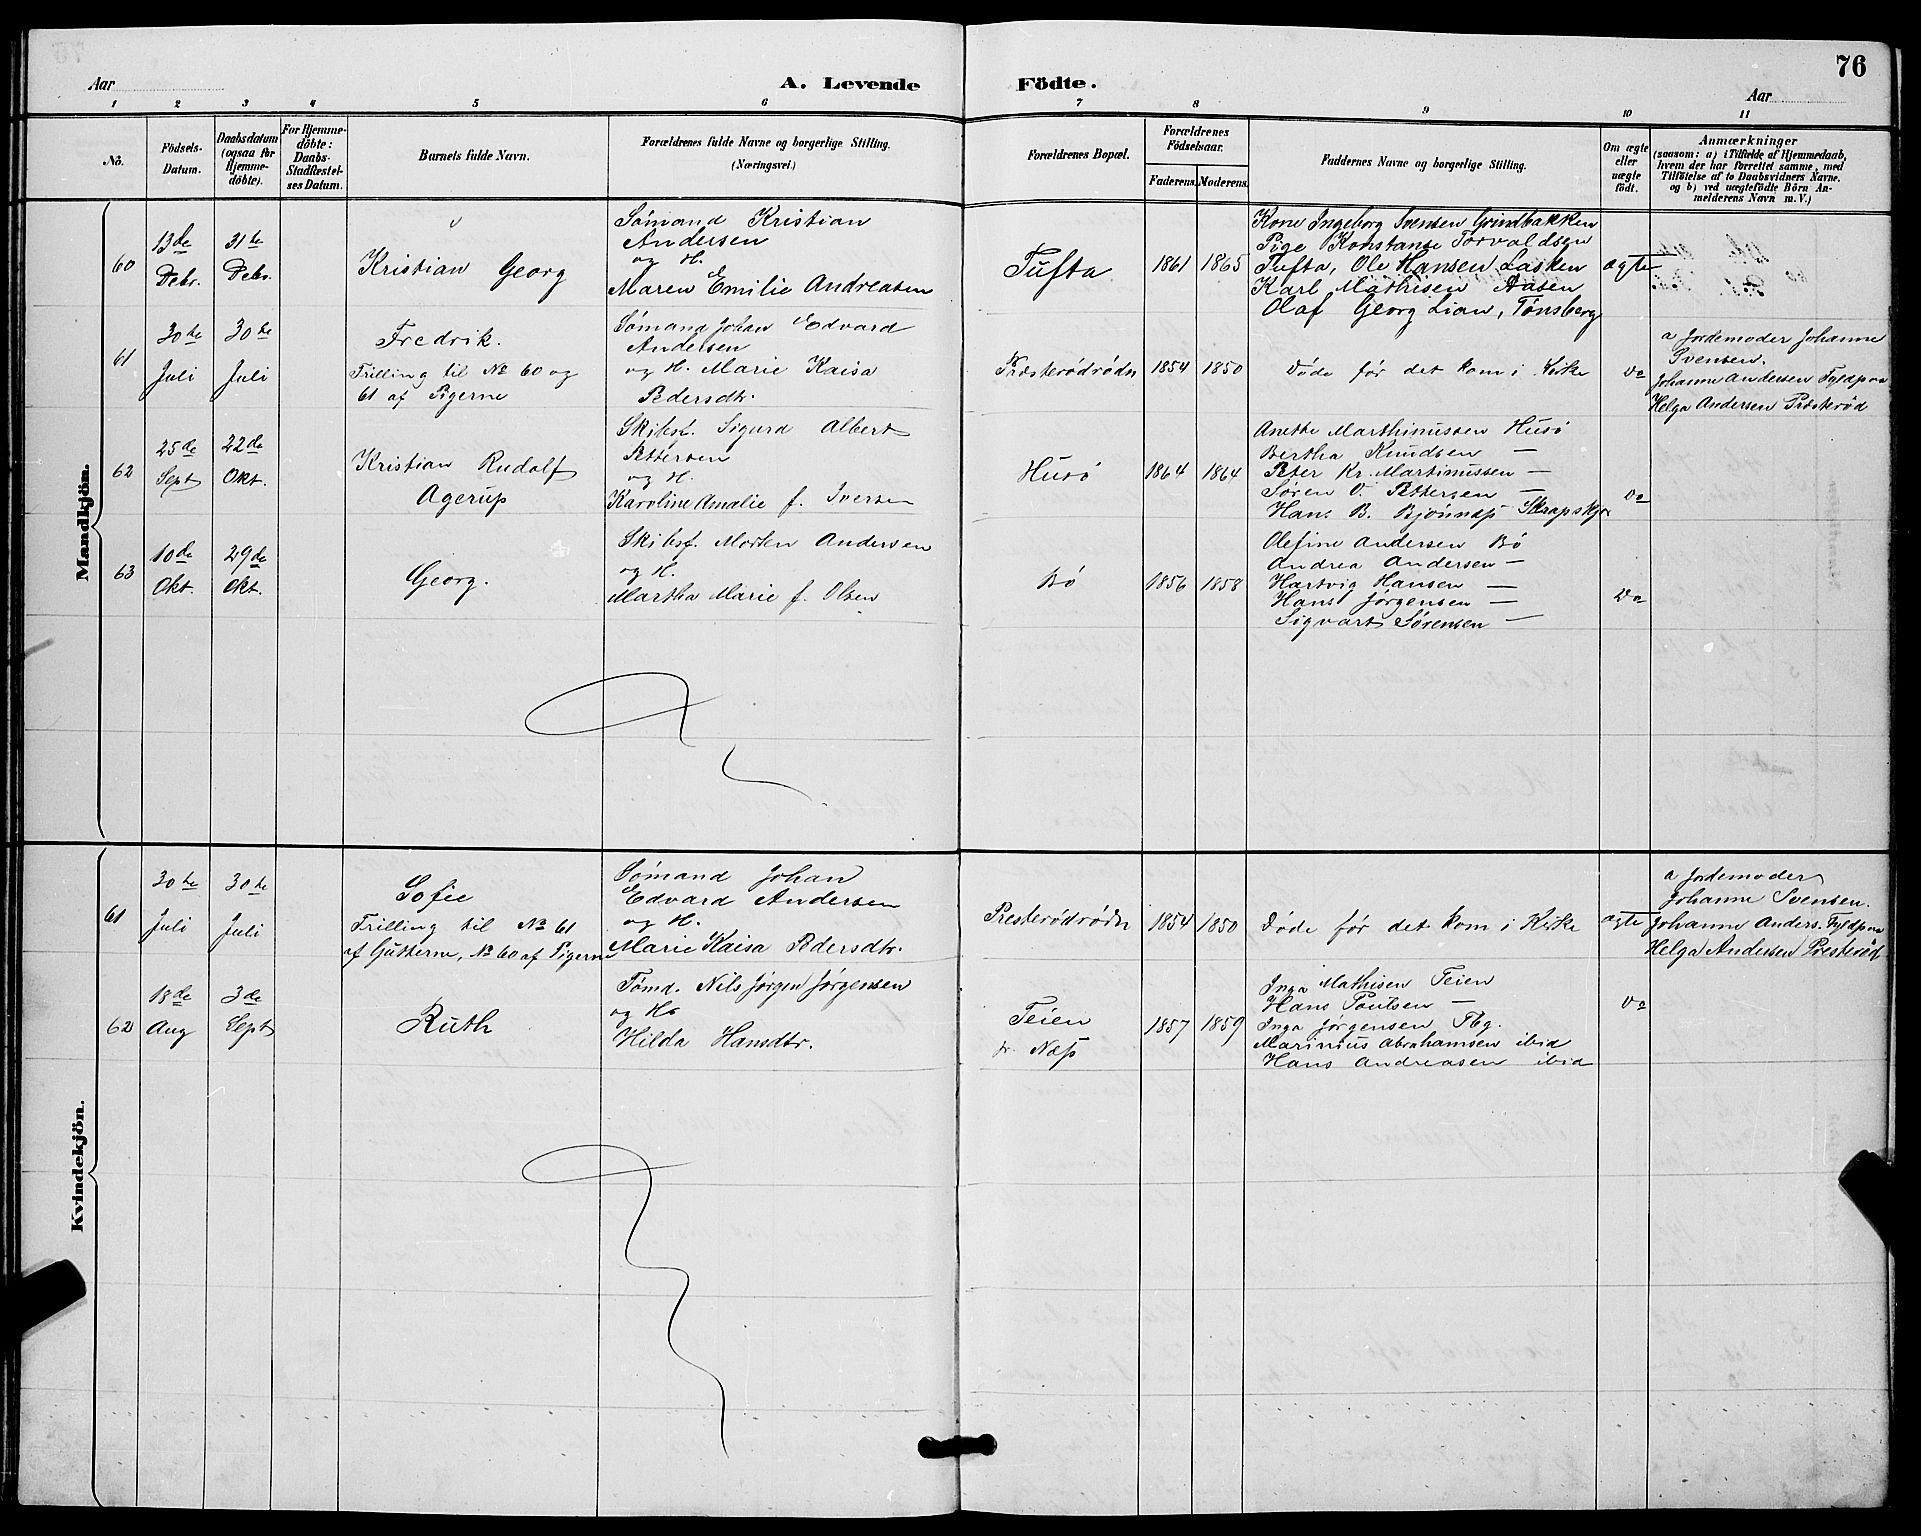 76
Aar
A. Levende Födte.
Aar
1 2 3 4 5 6 7 8 9 10 11
No.
Födsels-
Datum.
Daabsdatum
(ogsaa for
Hjemme-
döbte).
For Hjemme-
döbte:
Daabs-
Stadfæstel-
ses Datum.
Barnets fulde Navn.
Forældrenes fulde Navne og borgerlige Stilling.
(Næringsvei.)
Forældrenes Bopæl.
Forældrenes
Födselsaar.
Faderens. Moderens.
Faddernes Navne og borgerlige Stilling.
Om ægte
eller
uægte
födt.
Anmærkninger
(saasom: a) i Tilfælde af Hjemmedaab,
hvem der har forrettet samme, med
Tilföielse af to Daabsvidners Navne.
og b) ved uægtefödte Börn An-
melderens Navn m. V.)
Mandkjön.
60
13de
Debr.
31te
Debr.
Kristian Georg
Sømand Kristian
Andersen
og H.
Maren Emilie Andreasen
Tufta
1861 1865
Kone Ingeborg Svensen Grindbakken
Pige Konstanse Torvaldsen
Tufta, Ole Hansen Lasken
Karl Mathisen Aasen
Olaf Georg Lian, Tønsberg
ægte
61
30te
Juli
30te
Juli
Fredrik.
Trilling til No 60 og
61 af Pigerne
Sømand Johan Edvard
Andersen
og H. Marie Kaisa
Pedersdtr.
Præsterødrødn
1854 1850
Døde før det kom i Kirke
Do
a Jordemoder Johanne
Svensen.
Johanne Andersen Fyldpaa
Helga Andersen Præsterød
62
25de
Sept
22de
Okt.
Kristian Rudolf
Agerup
Skibsf. Sigurd Albert
Pettersen
og H.
Karoline Amalie f. Iversen
Husø
1864 1864
Anette Marthinussen Husø
Bertha Knudsen —
Peter Kr. Martinussen —
Søren O. Pettersen —
Hans B. Bjønnæs
Do
63
10de
Okt.
29de
Okt.
Georg.
Skibsf. Morten Andersen
og H.
Martha Marie f. Olsen
Bø
1856 1858
Olefine Andersen Bø
Andrea Andersen —
Hartvig Hansen —
Hans Jørgensen —
Sigvart Sørensen —
Do
Kvindekjön.
61
30te
Juli
30te
Juli
Sofie
Trilling til No 61
af Gutterne, No 60 af Pigerne
Sømand Johan
Edvard Andersen
og H.
Marie Kaisa Pedersdtr.
Presterødrødn
1854 1850
Døde før det kom i Kirke
ægte
a Jordemoder
Johanne Svensen.
Johanne Anders. Fyldpaa
Helga Andersen Presterød
62
18de
Aug
3de
Sept
Ruth
Tømd. Nils Jørgen Jørgensen
og H.
Hilda Hansdtr.
Teien
Næs
1857 1859
Inga Mathisen Teien
Hans Paulsen —
Inga Jørgensen Tbg.
Marinius Abrahamsen ibid
Hans Andreasen ibid
Do